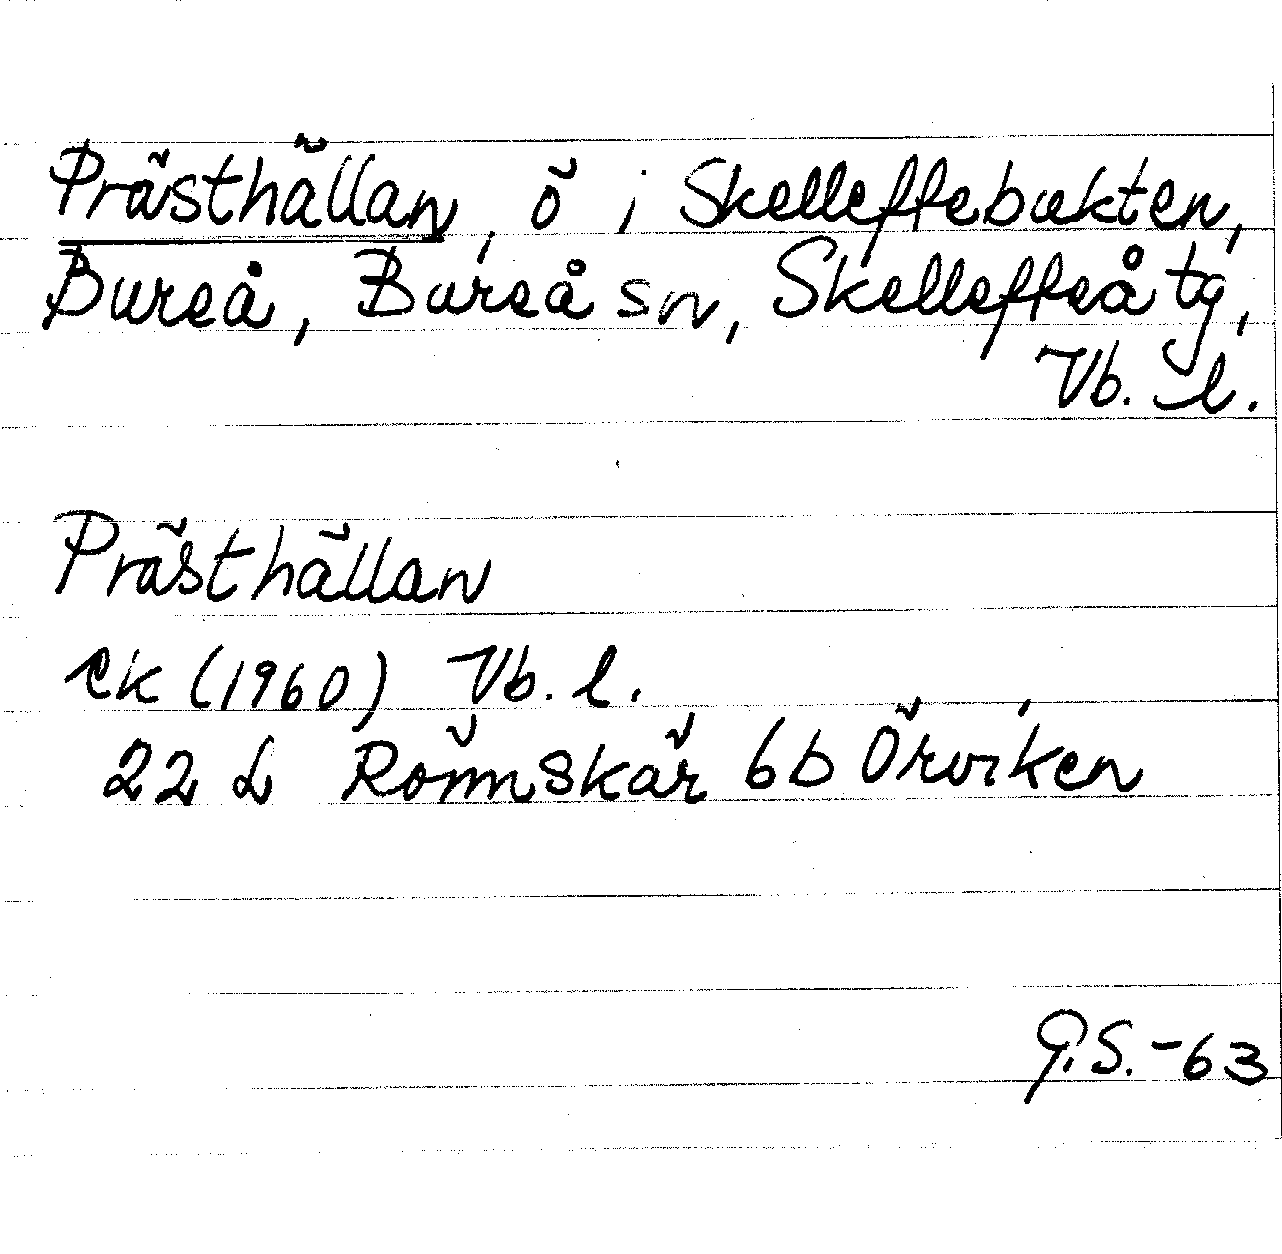 Prästhällan, ö i Skelleftebukten,
Bureå, Bureå sn, Skellefteå tg,
Vb. l.
Prästhällan
ek (1960) Vb. l.
22 L Rönnskär 6b Örviken
G.S.-63